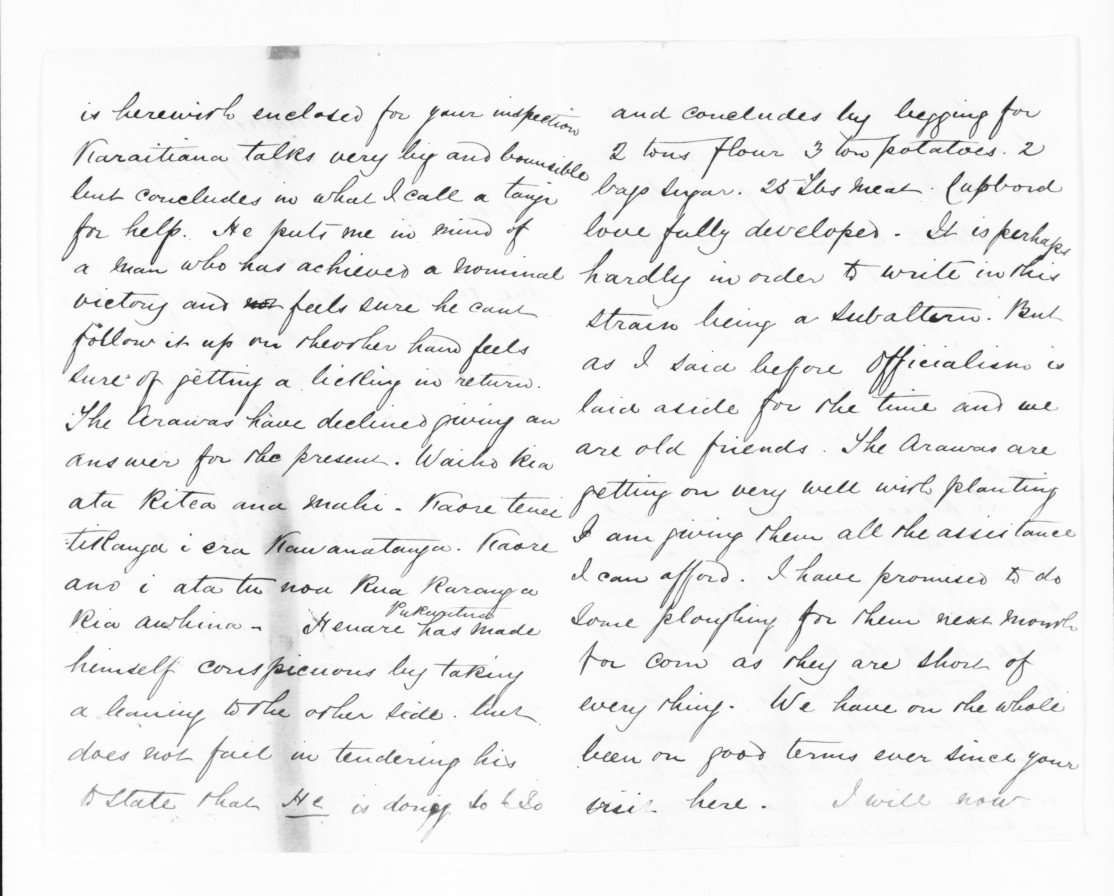 is herewith enclosed for your inspection
Karaitiana talks very big and bounsible
but concludes in what I call a tangi
for help. He puts me in mind of
a man who has achieved a nominal
victory and not feels sure he cant
follow it up on the other hand feels
sure of getting a licking in return.
The Arawas have declined giving an
answer for the present. Waiho kia
ata kitea ana mahi. Kaore tenei
tikanga i era Kawanatanga. Kaore
ano i ata tu noa kua karanga
kia awhina - Henare Pukuatua has made
himself conspicuous by taking
a leaning to the other side. but
does not fail in tendering his
to state that He is doing so & so
and concludes by begging for
2 tons flour 3 ton potatoes. 2
bags sugar. 25 lbs meat. Cupbord
love fully developed - It is perhaps
hardly in order to write in this
strain being a subaltern. But
as I said before Officialism is
laid aside for the time and we
are old friends. The Arawas are
getting on very well with planting
I am giving them all the assistance
I can afford. I have promised to do
some ploughing for them next month
for corn as they are short of
every thing. We have on the whole
been on good terms ever since your
visit here. I will now